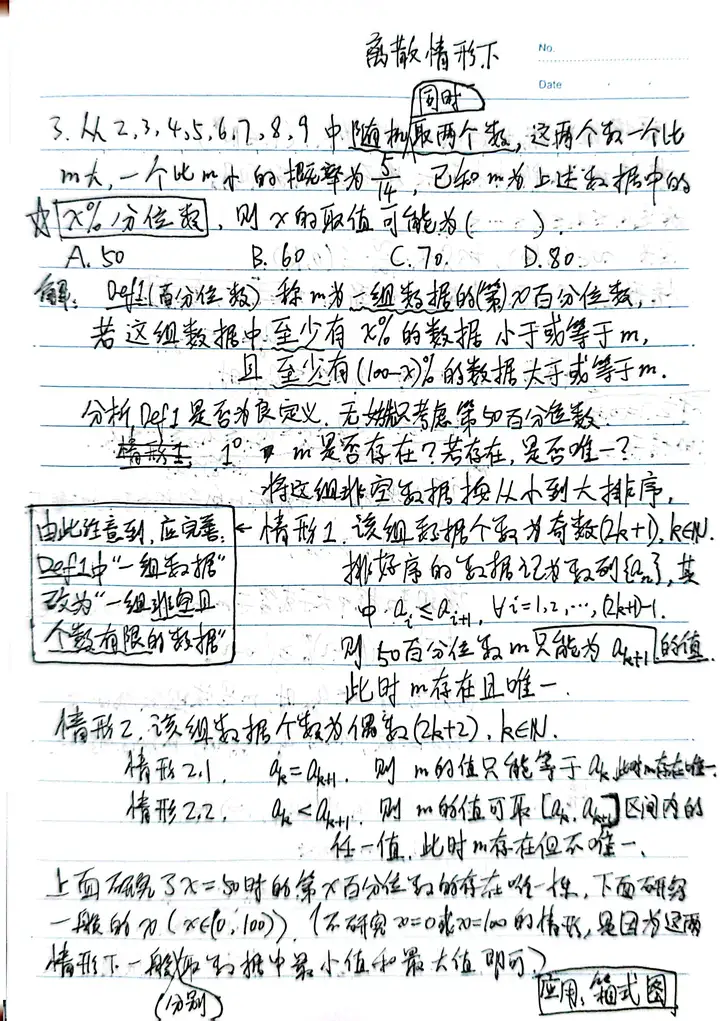 离散情形下
No.
Date
同时
3. 从 2,3,4,5,6,7,8,9 中随机取两个数, 这两个数一个比
m大, 一个比m小的概率为 5/14, 已知m为上述数据中的
☆ x%分位数, 则x的取值可能为( ).
A. 50 B. 60 C. 70. D. 80.
解: Def1(百分位数) 称m为一组数据的(第)x百分位数,
若这组数据中至少有x%的数据小于或等于m,
且至少有(100-x)%的数据大于或等于m.
分析Def1是否为良定义. 无妨只考虑第50百分位数.
情形1, 1° m是否存在? 若存在, 是否唯一?
将这组非空数据按从小到大排序,
由此注意到, 应完善:
Def1中"一组数据"
改为"一组非空且
个数有限的数据"
← 情形1. 该组数据个数为奇数(2k+1), k∈N.
排好序的数据记为数列{aₙ}, 其
中 aᵢ≤aᵢ₊₁, ∀i=1,2,…,(2k+1)-1.
则50百分位数m只能为aₖ₊₁的值.
此时m存在且唯一.
情形2. 该组数据个数为偶数(2k+2), k∈N.
情形2.1. aₖ=aₖ₊₁. 则m的值只能等于aₖ, 此时m存在唯一.
情形2.2. aₖ<aₖ₊₁. 则m的值可取[aₖ, aₖ₊₁]区间内的
任一值, 此时m存在但不唯一.
上面研究了x=50时的第x百分位数的存在唯一性, 下面研究
一般的x(x∈(0,100)). (不研究x=0或x=100的情形, 是因为这两
情形下一般取数据中最小值和最大值即可)
(分别)
应用: 箱式图